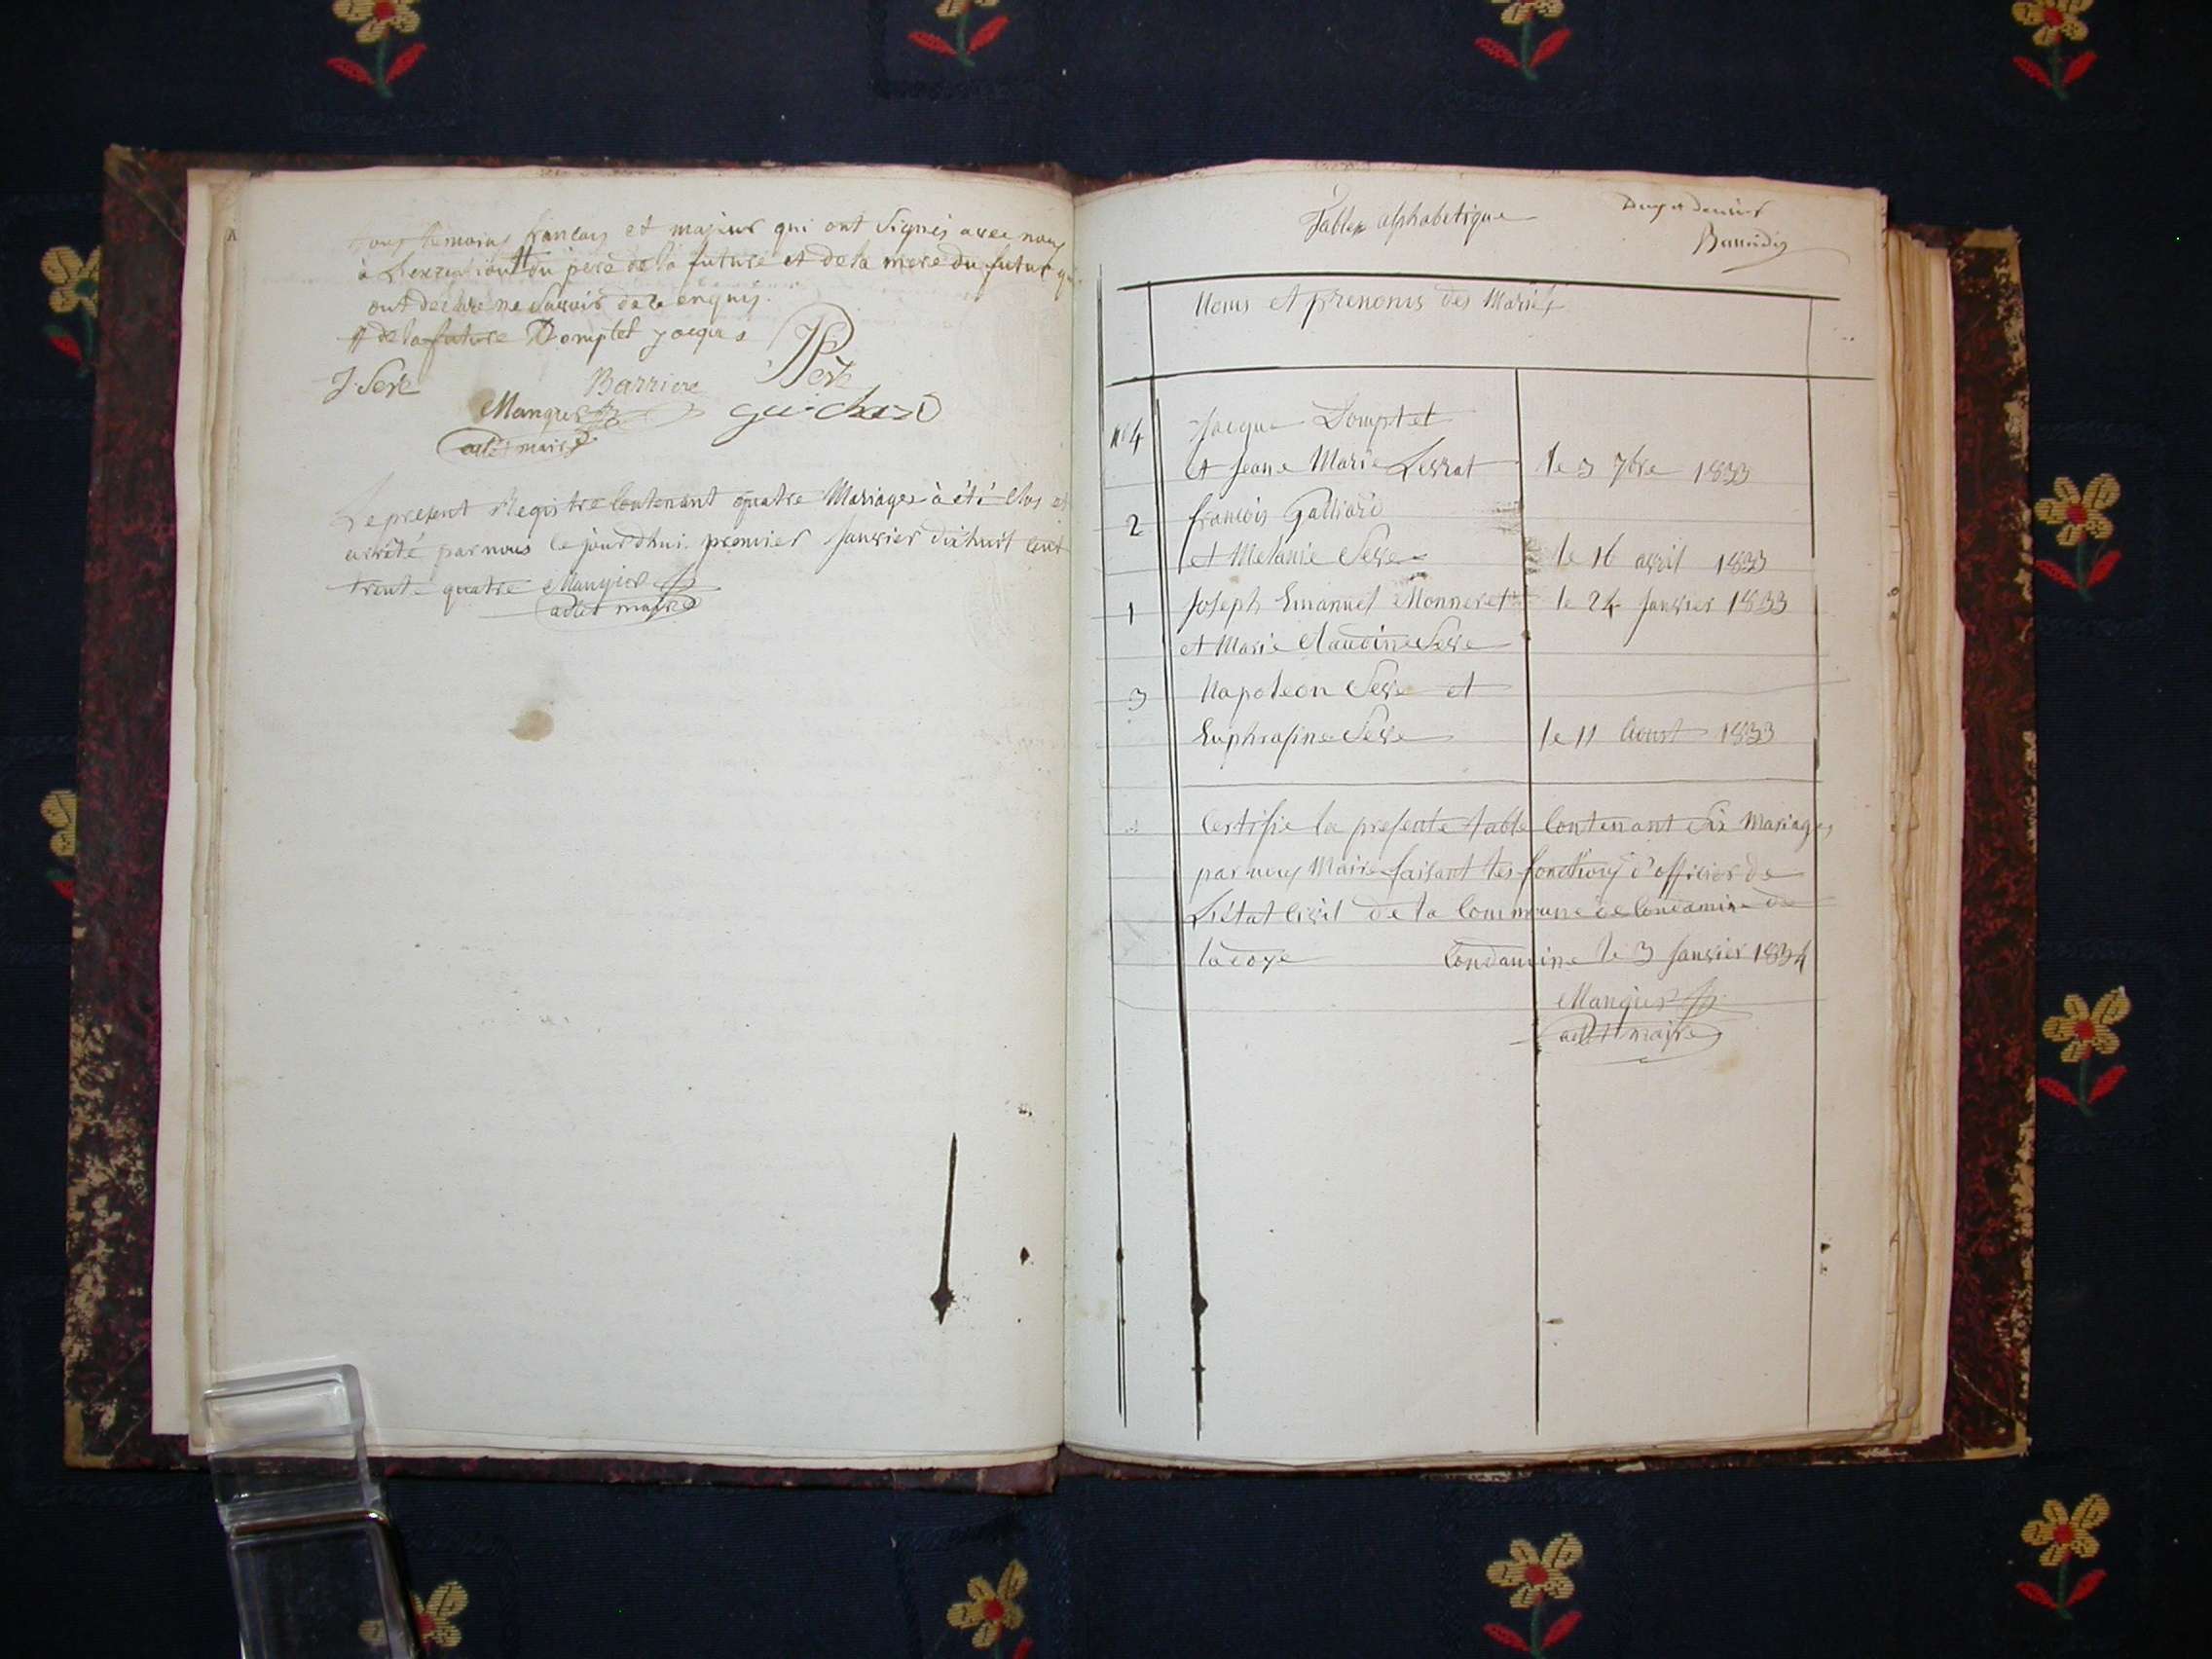 tous temoins francais et majeur qui ont Signés avec nous
à L'exception # du père de la future et de la mere du futur qui
ont declaré ne Savoir de ce enquis.
# de la future Domptet jacques
J. Serve
Barriere
Mangier
guichard
adjt maire
Le present Registre Contenant quatre Mariages à été Clos et
arrêté par nous cejourd'hui premier Janvier dix huit Cent
trente quatre Mangier
adjt maire
Table alphabetique
Noms et prenoms des Mariés
No 4 Jacque Domptet
et Jeane Marie Lerrat le 3 7bre 1833
2 francois Galliard
et Melanie Serve le 16 avril 1833
1 Joseph Emanuel Monneret le 24 Janvier 1833
et Marie Claudine Serve
3 Napoleon Serve et
Euphrasine Serve le 11 Aoust 1833
Certifie la presente table Contenant Six Mariages
par nous Maire faisant les fonctions d'officier de
L'état Civil de la Commune de Condamine de
la doye Condamine le 3 Janvier 1834
Mangier
adjt maire